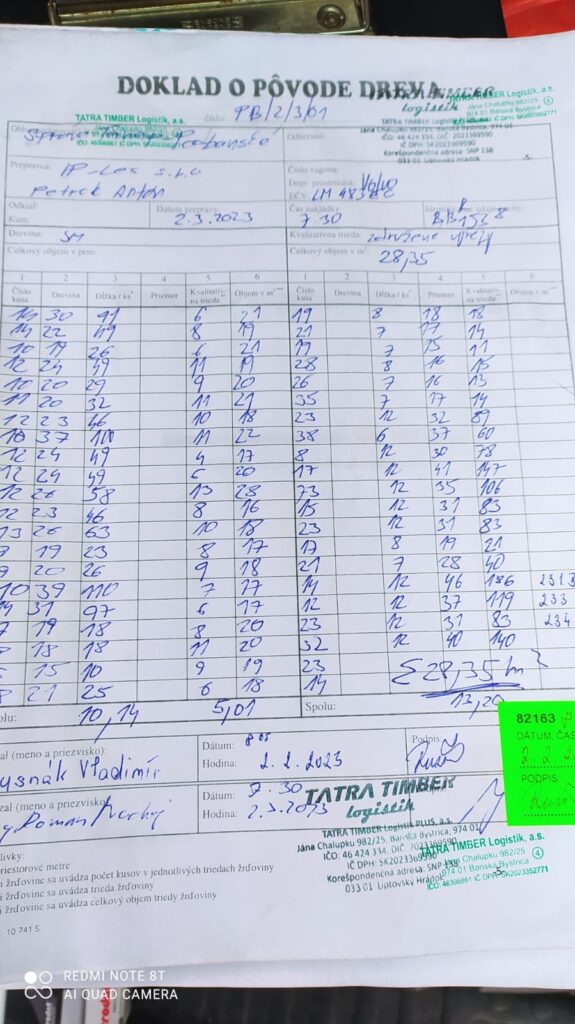 DOKLAD O PÔVODE DREVA
TATRA TIMBER
logistik
TATRA TIMBER Logistik, a.s.
Jána Chalupku 982/25
974 01 Banská Bystrica
TATRA TIMBER Logistik, a.s.
číslo: PB/2/3/01
TATRA TIMBER Logistik PLUS, a.s.
Jána Chalupku 982/25, Banská Bystrica, 974 01
IČO: 46 424 334, DIČ: 2023369590
IČ DPH: SK2023369590
Korešpondenčná adresa: SNP 138
033 01 Liptovský Hrádok
-5-
Odberateľ:
Prepravca: IP-Les s.r.o
Petrek Anton
Číslo vagóna:
Druh. prostriedok: Volvo
EČV: LM 483EC
Odkiaľ:
Kam:
Dátum prepravy:
2.3.2023
Čas nakládky
7.30
Drevina: SM
Kvalitatívna trieda: združené výrezy
Celkový objem v prm:
Celkový objem v m³: 28,35
1 2 3 4 5 6 1 2 3 4 5 6
Číslo kusa Drevina Dĺžka / ks Priemer Kvalitatív. na trieda Objem v m Číslo kusa Drevina Dĺžka / ks Priemer Kvalitatív. na trieda Objem v m
14 30 91 6 21 19 8 18 18
14 22 49 8 19 21 7 17 14
10 19 26 6 21 19 7 15 11
12 24 49 11 19 28 8 16 15
10 20 29 9 20 26 7 16 13
11 20 32 11 21 35 7 17 14
12 23 46 10 18 23 12 32 89
10 37 100 11 22 38 6 37 60
12 24 49 4 17 8 12 30 78
12 24 49 6 20 17 12 41 147
12 26 58 13 28 73 12 35 106
12 23 46 8 16 15 12 31 83
13 26 63 10 18 23 12 31 83
7 19 23 8 17 17 8 19 21
9 20 26 9 18 21 7 28 40
10 39 110 7 17 14 12 46 186 231
14 31 97 6 17 12 12 37 119 233
7 19 18 8 20 23 12 31 83 234
18 18 11 20 32 12 40 140
15 10 9 19 23 Σ 28,35 m
8 21 25 6 18 14
olu: 10,14 5,01 Spolu: 13,20
zal (meno a priezvisko):
usnák Vladimír
Dátum:
Hodina: 2.2.2023
Podpis:
82163
DÁTUM ČAS
PODPIS
zal (meno a priezvisko):
Roman
Dátum: 7.30
Hodina: 2.3.2023
TATRA TIMBER
logistik
TATRA TIMBER Logistik PLUS, a.s.
Jána Chalupku 982/25, Banská Bystrica, 974 01
IČO: 46 424 334, DIČ: 2023369590
IČ DPH: SK2023369590
Korešpondenčná adresa: SNP 138
033 01 Liptovský Hrádok
-5-
TATRA TIMBER Logistik, a.s.
Jána Chalupku 982/25
974 01 Banská Bystrica
IČO: 46396861 IČ DPH: SK2023352771
livky:
riestorové metre
i žrďovine sa uvádza počet kusov v jednotlivých triedach žrďoviny
i žrďovine sa uvádza trieda žrďoviny
i žrďovine sa uvádza celkový objem triedy žrďoviny
10 741 5
REDMI NOTE 8T
AI QUAD CAMERA